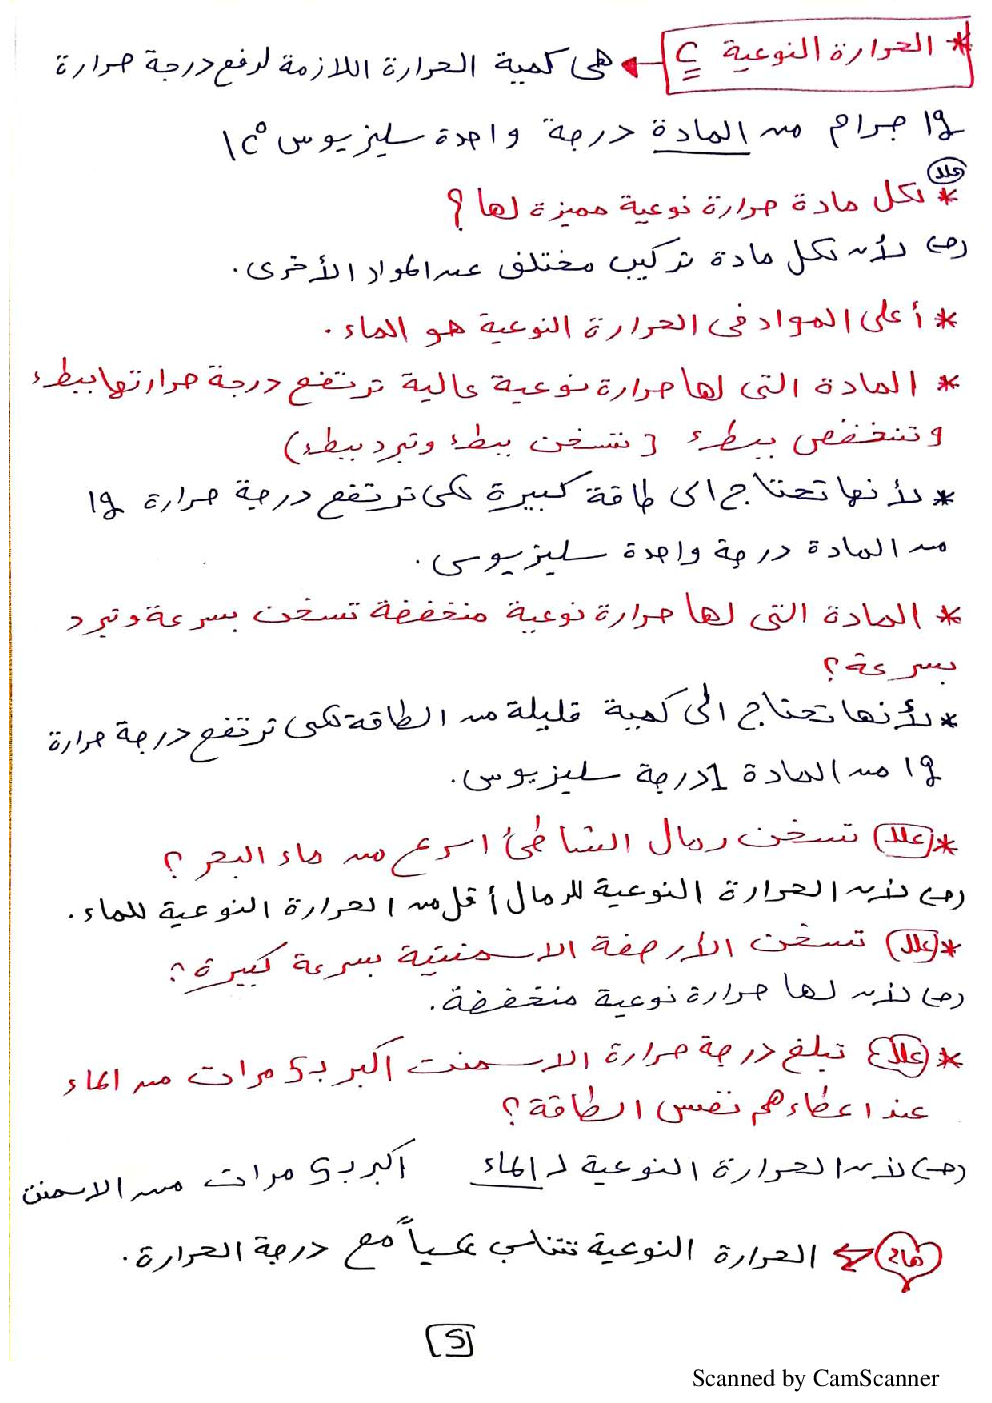 * الحرارة النوعية C ← هى كمية الحرارة اللازمة لرفع درجة حرارة
1g جرام من المادة درجة واحدة سليزيوس 1c°
علل
* لكل مادة حرارة نوعية مميزة لها ؟
ج) لأن لكل مادة تركيب مختلف عن المواد الأخرى .
* أعلى المواد فى الحرارة النوعية هو الماء .
* المادة التى لها حرارة نوعية عالية ترتفع درجة حرارتها ببطء
وتنخفض ببطء (تسخن ببطء وتبرد ببطء)
* لأنها تحتاج الى طاقة كبيرة لكى ترتفع درجة حرارة 1g
من المادة درجة واحدة سليزيوس .
* المادة التى لها حرارة نوعية منخفضة تسخن بسرعة وتبرد
بسرعة ؟
* لأنها تحتاج الى كمية قليلة من الطاقة لكى ترتفع درجة حرارة
1g من المادة 1 درجة سليزيوس .
* علل تسخن رمال الشاطئ اسرع من ماء البحر ؟
ج) لأن الحرارة النوعية للرمال أقل من الحرارة النوعية للماء .
* علل تسخن الأرصفة الاسمنتية بسرعة كبيرة ؟
ج) لأن لها حرارة نوعية منخفضة .
* علل تبلغ درجة حرارة الاسمنت أكبر بـ 5 مرات من الماء
عند اعطاءهم نفس الطاقة ؟
ج) لأن الحرارة النوعية لـ الماء أكبر بـ 5 مرات من الاسمنت
هام ⇐ الحرارة النوعية تتناسب عكسياً مع درجة الحرارة .
5
Scanned by CamScanner